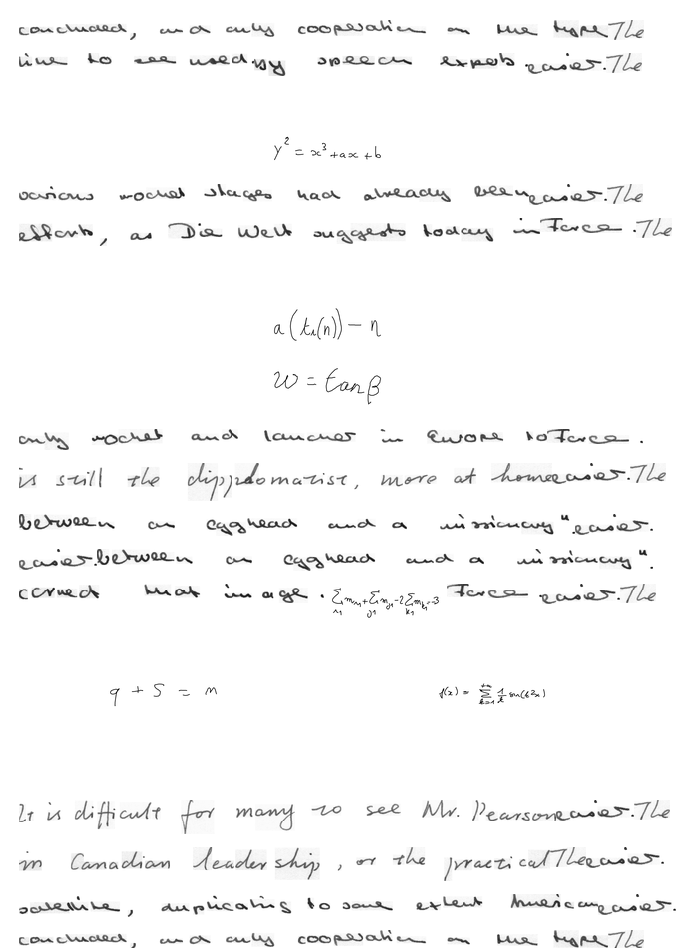 concluded, and only cooperation on the type The
line to see used by speech experts easier. The
y² = x³ + ax + b
various rocket stages had already been easier. The
efforts, as Die Welt suggests today in Farce . The
a(t₁(n)) − n
w = tan β
only rocket and launcher in Europe to Farce .
is still the dipplomatist, more at home easier. The
between an egghead and a missionary" easier.
easier. between an egghead and a missionary".
carved that image . Farce easier. The
q + S = m
f(x) = ∑_{k=1}^{+∞} 1/k sin(k²x)
It is difficult for many to see Mr. Pearson easier. The
in Canadian leader ship , or the practical The easier.
satellite, duplicating to some extent American easier.
concluded, and only cooperation on the type The